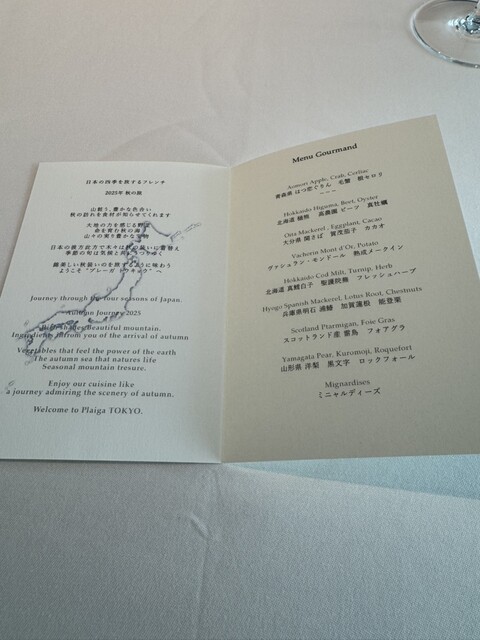 日本の四季を旅するフレンチ
2025年 秋の旅
山粧う、豊かな色合い
秋の訪れを食材が知らせてくれます
大地の力を感じる野菜
命を育む秋の海
山々の実り豊かな宝物
日本の秋
季節の旬は気候と共に
ようこそ
Journey through the four seasons of Japan.
Autumn Journey 2025
Rich shades beautiful mountain.
Ingredients inform you of the arrival of autumn
Vegetables that feel the power of the earth
The autumn sea that natures life
Seasonal mountain tresure.
Enjoy our cuisine like
a journey admiring the scenery of autumn.
Welcome to Plaiga TOKYO.
Menu Gourmand
Aomori Apple, Crab, Celiac
青森県 はつ恋ぐりん 毛蟹 根セロリ
~ ~ ~
Hokkaido Higuma, Beet, Oyster
北海道 羆 高農園 ビーツ 真牡蠣
Oita Mackerel , Eggplant, Cacao
大分県 関さば 賀茂茄子 カカオ
Vacherin Mont d'Or, Potato
ヴァシュラン・モンドール 熟成メークイン
Hokkaido Cod Milt, Turnip, Herb
北海道 真鱈白子 聖護院蕪 フレッシュハーブ
Hyogo Spanish Mackerel, Lotus Root, Chestnuts
兵庫県明石 鰆 加賀蓮根 能登栗
Scotland Ptarmigan, Foie Gras
スコットランド産 雷鳥 フォアグラ
Yamagata Pear, Kuromoji, Roquefort
山形県 洋梨 黒文字 ロックフォール
Mignardises
ミニャルディーズ